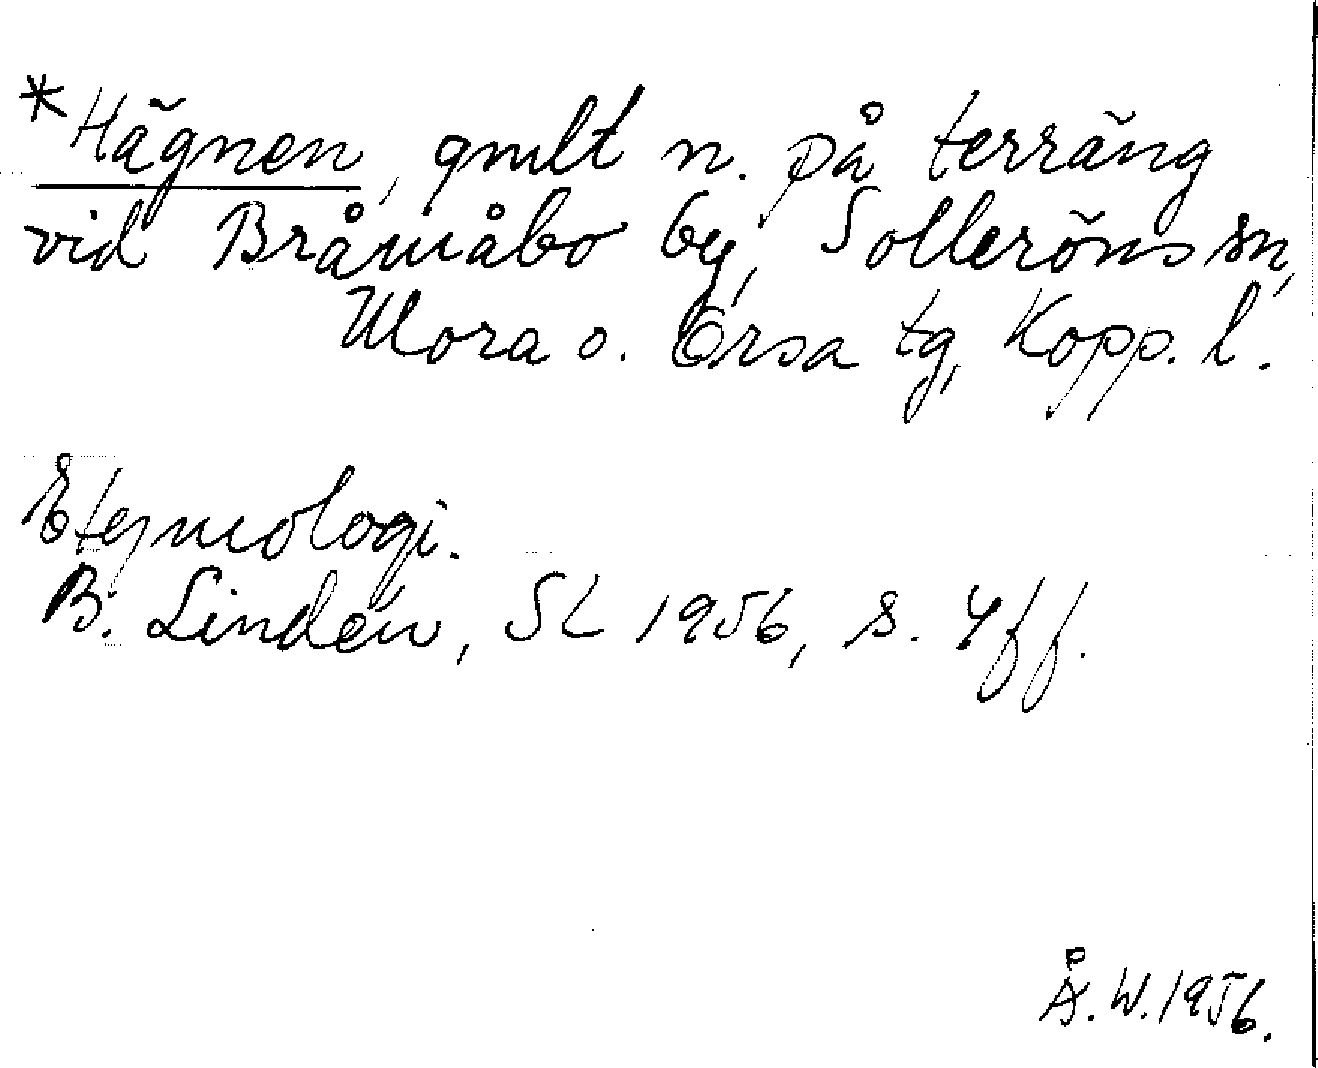 *Hägnen, gmlt n. på terräng
vid Bråmåbo by, Solleröns sn,
Mora o. Orsa tg, Kopp. l.
Etymologi.
B. Lindén, SL 1956, s. 4ff.
Å.W.1956.